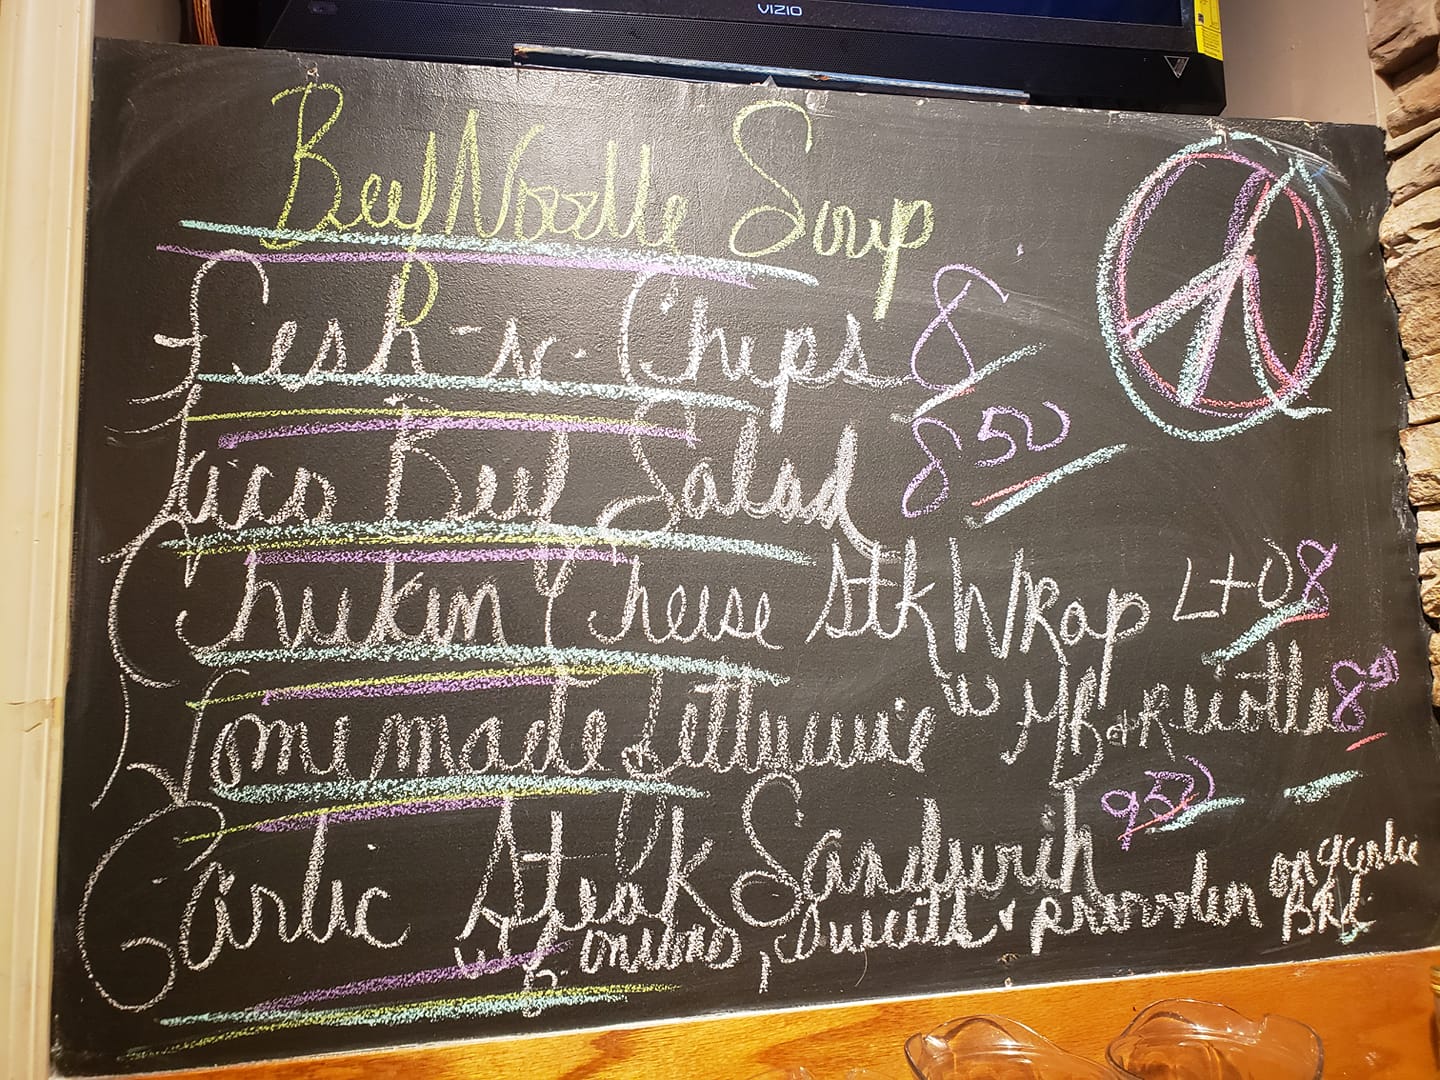 VIZIO
Beef Noodle Soup
Fesh-n-Chips 8
Taco Beef Salad 8 50
Chicken Cheese Stk Wrap L+O 8
Homemade Fettuccine w MB + Ricotta 8 50
Garlic Steak Sandwich 9 50
w f. onions, sweets + provolon on garlic
BRd.